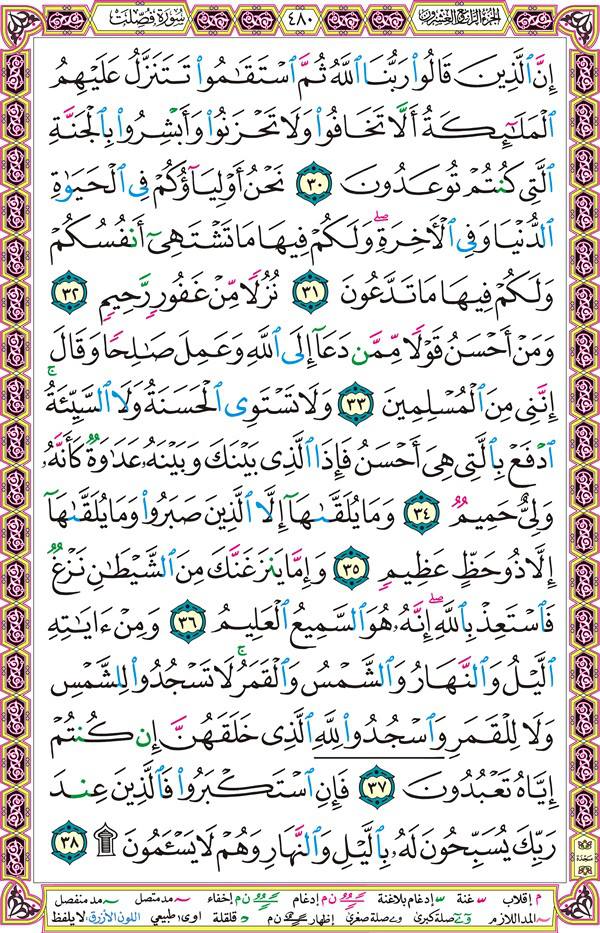 الجزء الرابع والعشرون ٤٨٠ سورة فصلت
إِنَّ ٱلَّذِينَ قَالُوا۟ رَبُّنَا ٱللَّهُ ثُمَّ ٱسْتَقَـٰمُوا۟ تَتَنَزَّلُ عَلَيْهِمُ
ٱلْمَلَـٰٓئِكَةُ أَلَّا تَخَافُوا۟ وَلَا تَحْزَنُوا۟ وَأَبْشِرُوا۟ بِٱلْجَنَّةِ
ٱلَّتِى كُنتُمْ تُوعَدُونَ ٣٠ نَحْنُ أَوْلِيَآؤُكُمْ فِى ٱلْحَيَوٰةِ
ٱلدُّنْيَا وَفِى ٱلْـَٔاخِرَةِ ۖ وَلَكُمْ فِيهَا مَا تَشْتَهِىٓ أَنفُسُكُمْ
وَلَكُمْ فِيهَا مَا تَدَّعُونَ ٣١ نُزُلًا مِّنْ غَفُورٍ رَّحِيمٍ ٣٢
وَمَنْ أَحْسَنُ قَوْلًا مِّمَّن دَعَآ إِلَى ٱللَّهِ وَعَمِلَ صَـٰلِحًا وَقَالَ
إِنَّنِى مِنَ ٱلْمُسْلِمِينَ ٣٣ وَلَا تَسْتَوِى ٱلْحَسَنَةُ وَلَا ٱلسَّيِّئَةُ ۚ
ٱدْفَعْ بِٱلَّتِى هِىَ أَحْسَنُ فَإِذَا ٱلَّذِى بَيْنَكَ وَبَيْنَهُۥ عَدَٰوَةٌ كَأَنَّهُۥ
وَلِىٌّ حَمِيمٌ ٣٤ وَمَا يُلَقَّىٰهَآ إِلَّا ٱلَّذِينَ صَبَرُوا۟ وَمَا يُلَقَّىٰهَآ
إِلَّا ذُو حَظٍّ عَظِيمٍ ٣٥ وَإِمَّا يَنزَغَنَّكَ مِنَ ٱلشَّيْطَـٰنِ نَزْغٌ
فَٱسْتَعِذْ بِٱللَّهِ ۖ إِنَّهُۥ هُوَ ٱلسَّمِيعُ ٱلْعَلِيمُ ٣٦ وَمِنْ ءَايَـٰتِهِ
ٱلَّيْلُ وَٱلنَّهَارُ وَٱلشَّمْسُ وَٱلْقَمَرُ ۚ لَا تَسْجُدُوا۟ لِلشَّمْسِ
وَلَا لِلْقَمَرِ وَٱسْجُدُوا۟ لِلَّهِ ٱلَّذِى خَلَقَهُنَّ إِن كُنتُمْ
إِيَّاهُ تَعْبُدُونَ ٣٧ فَإِنِ ٱسْتَكْبَرُوا۟ فَٱلَّذِينَ عِندَ
رَبِّكَ يُسَبِّحُونَ لَهُۥ بِٱلَّيْلِ وَٱلنَّهَارِ وَهُمْ لَا يَسْـَٔمُونَ ۩ ٣٨
سجدة
م إقلاب غنة إدغام بلاغنة ن م إدغام ن م إخفاء مد متصل مد منفصل
المد اللازم صلة كبرى صلة صغرى إظهار ن م قلقلة اوى طبيعي اللون الأزرق لا يلفظ